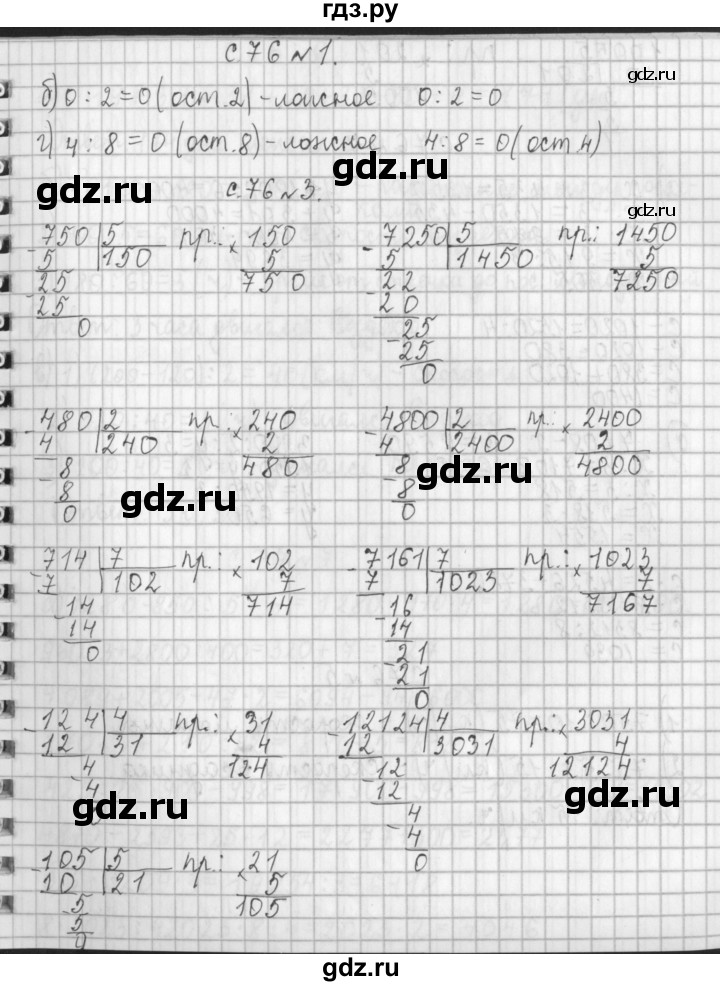 гдз.ру
с.76 №1.
gdz.ru
б) 0 : 2 = 0 (ост.2) - ложное 0 : 2 = 0
г) 4 : 8 = 0 (ост.8) - ложное 4 : 8 = 0 (ост 4)
gdz.ru
gdz.ru
с.76 №3.
gdz.ru
- 750 | 5 пр.: × 150 - 7250 | 5 пр.: 1450
5 150 5 5 1450 5
25 750 22 7250
- 25 - 20
0 - 25
25
0
- 480 | 2 пр.: × 240 - 4800 | 2 пр.: × 2400
4 240 2 4 2400 2
8 480 8 4800
- 8 - 8
0 0
gdz.ru gdz.ru
- 714 | 7 пр.: × 102 - 7161 | 7 пр.: × 1023
7 102 7 7 1023 7
- 14 714 - 16 7167
14 14
0 - 21
21
0
- 124 | 4 пр.: × 31 - 12124 | 4 пр.: × 3031
12 31 4 12 3031 4
4 124 - 12 12124
- 4 12
gdz.ru gdz.ru
- 4
4
0
- 105 | 5 пр.: × 21
10 21 5
- 5 105
5
0
gdz.ru
gdz.ru